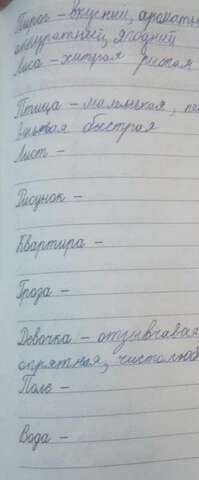 Пирог – вкусный, ароматн
аккуратный, ягодный
Лиса – хитрая рыжая
Птица – маленькая, пе
быстрая
Лист –
Рисунок –
Квартира –
Гроза –
Девочка – отзывчивая
опрятная, чистолюб
Поле –
Вода –